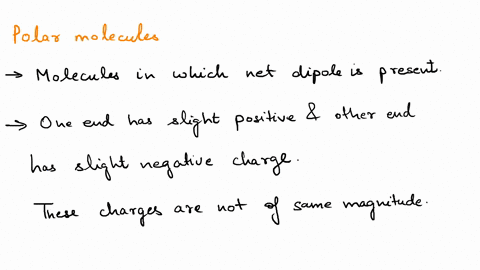 Polar molecules
→ Molecules in which net dipole is present.
→ One end has slight positive & other end
has slight negative charge.
These charges are not of same magnitude.